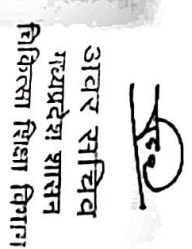 अवर सचिव
मध्यप्रदेश शासन
चिकित्सा शिक्षा विभाग